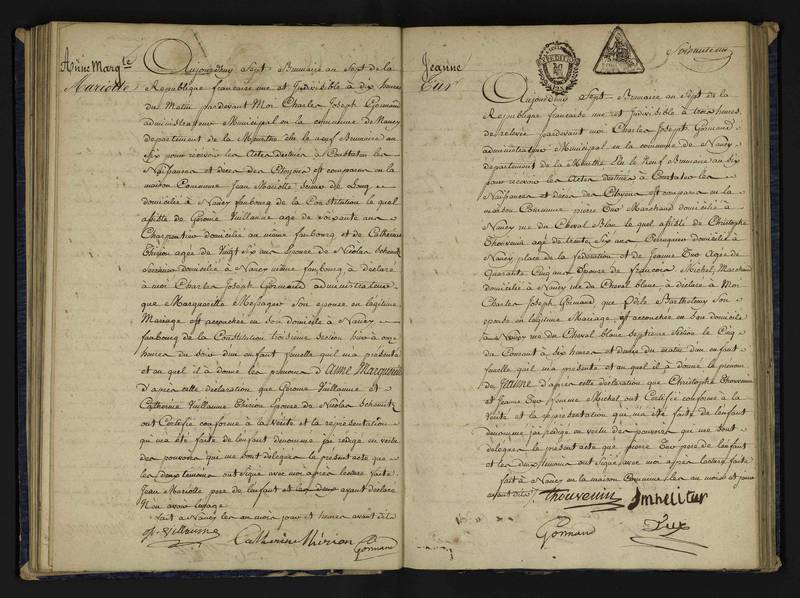 Anne Margte
Mariotte
Aujourd'huy Sept Brumaire an Sept de la
Republique francaise une et Indivisible à dix heures
du Matin pardevant Moi Charles Joseph Gormand
administrateur Municipal en la commune de Nancy
departement de la Meurthe élu le neuf Brumaire an
Six pour recevoir les Actes destinés à Constater les
Naissances et décès des Citoyens est comparu en la
maison Commune Jean Mariotte
domicilié à Nancy faubourg de la Constitution le quel
assisté de Gerome Vuillaume agé de soixante ans
Charpentier domicilié au même faubourg et de Catherine
Thirion agée de Vingt Six ans Epouse de Nicolas
domiciliée à Nancy même faubourg à déclaré
à moi Charles Joseph Gormand administrateur
que Marguerite son epouse en légitime
Mariage est accouchée en son domicile à Nancy
faubourg de la Constitution troisieme section hier à onze
heures du soir d'un enfant femelle qui m'a présenté
et au quel il à donné les prenoms d'Anne Marguerite
d'après cette déclaration que Gerome Vuillaume et
Catherine Vuillaume Thirion Epouse de Nicolas
ont Certifié conforme à la Vérité et la representation
qui m'a été faite de l'enfant denommé j'ai redigé en vertu
des pouvoirs qui me sont delegués le present acte que
les deux temoins ont signé avec moi après lecture faite
Jean Mariotte pere de l'enfant et les deux ayant declaré
N'en avoir l'usage
fait à Nancy les an mois jour et heures avant dits
Catherine Thirion
Gormand
Jeanne
Tux
Aujourd'huy Sept Brumaire an Sept de la
Republique francaise une et Indivisible à trois heures
de relevée pardevant moi Charles Joseph Gormand
administrateur Municipal en la commune de Nancy
departement de la Meurthe élu le neuf Brumaire an Six
pour recevoir les Actes destinés à Constater les
Naissances et décès des Citoyens est comparu en la
maison Commune pierre Tux Marchand domicilié à
Nancy rue du Cheval Blanc le quel assisté de Christophe
Thouvenin agé de trente Six ans Perruquier domicilié à
Nancy place de la federation et de Jeanne Tux Agée de
Quarante Cinq ans Epouse de francois Michel Marchand
domicilié à Nancy rue du Cheval blanc à declaré à Moi
Charles Joseph Gormand que Odile Barthelemy son
epouse en légitime Mariage est accouchée en son domicile
à Nancy rue du Cheval blanc septieme Section le Cinq
du Courant à Six heures et demies du matin d'un enfant
femelle qu'il m'a présenté et au quel il à donné le prenom
de Jeanne d'après cette déclaration que Christophe Thouvenin
et Jeanne Tux femme Michel ont Certifié conforme à la
Vérité et la representation qui m'a été faite de l'enfant
denommé j'ai redigé en vertu des pouvoirs qui me sont
delegués le present acte que pierre Tux pere de l'enfant
et les deux temoins ont signé avec moi après lecture faite
fait à Nancy en la maison Commune les an mois et jour
avant dits
Thouvenin
Gormand
Tux